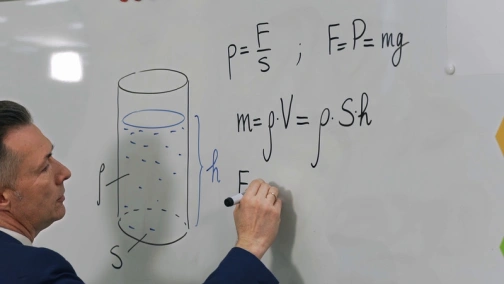 p = F/S ; F = P = mg
m = ρ · V = ρ · S · h
F
ρ
h
S